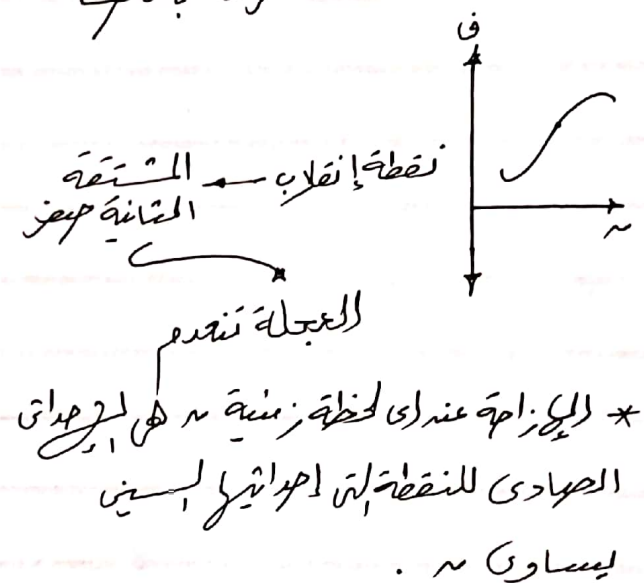 ف
نقطة إنقلاب ← المشتقة
الثانية صفر
ن
العجلة تنعدم
* الإزاحة عند اى لحظة زمنية ن هى الإحداثى
الصادى للنقطة التى إحداثيها السينى
يساوى ن .